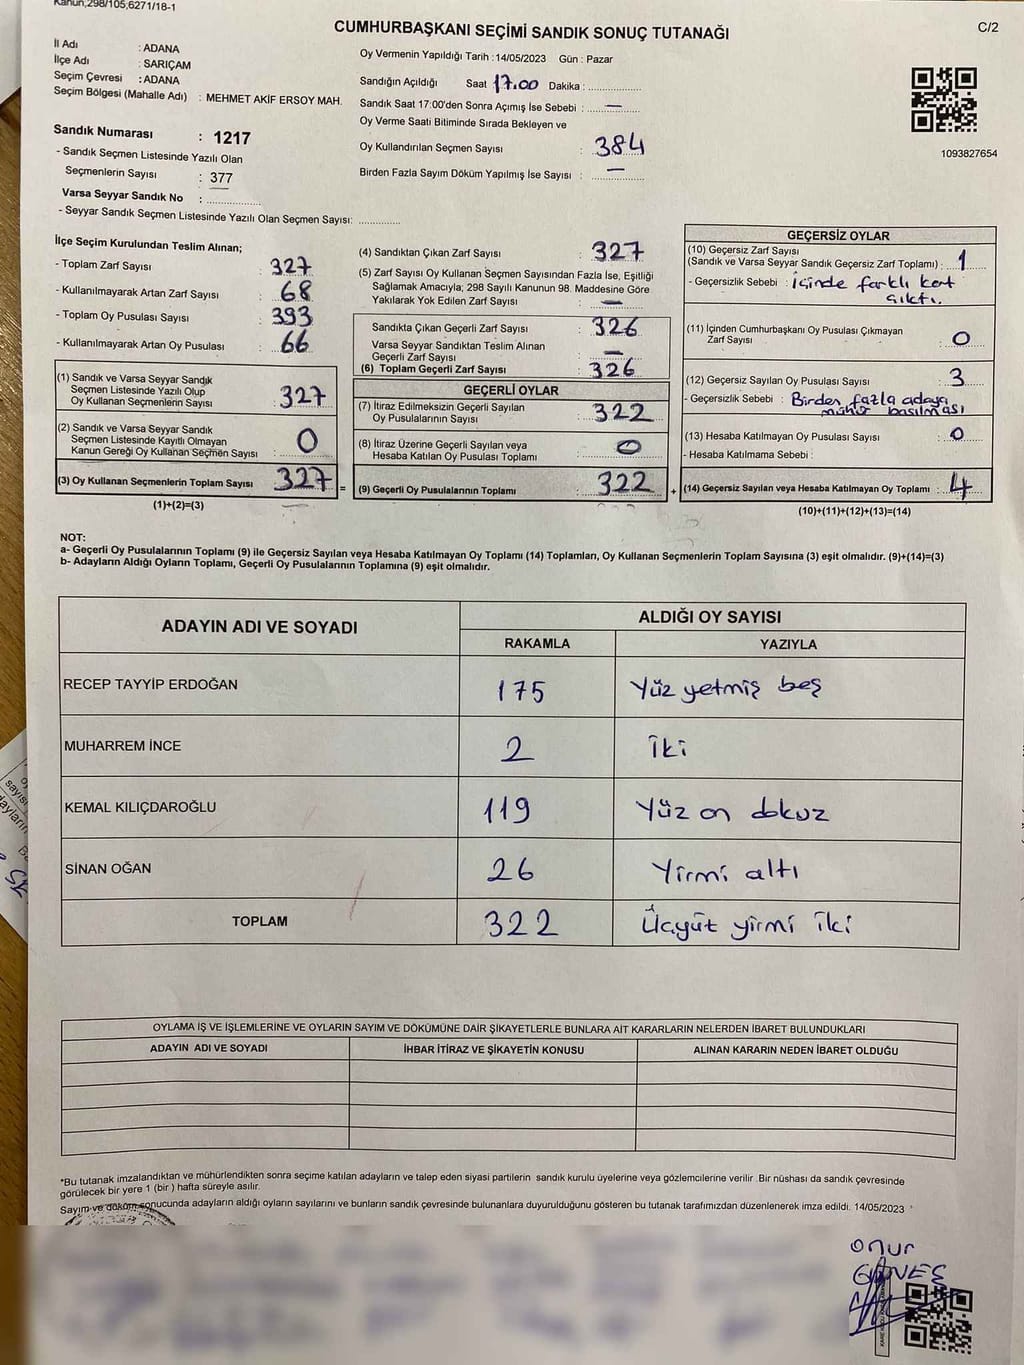 Kanun;298/105;6271/18-1
CUMHURBAŞKANI SEÇİMİ SANDIK SONUÇ TUTANAĞI
C/2
İl Adı : ADANA
İlçe Adı : SARIÇAM
Seçim Çevresi : ADANA
Seçim Bölgesi (Mahalle Adı) : MEHMET AKİF ERSOY MAH.
Sandık Numarası : 1217
- Sandık Seçmen Listesinde Yazılı Olan
Seçmenlerin Sayısı : 377
Varsa Seyyar Sandık No : ..............
- Seyyar Sandık Seçmen Listesinde Yazılı Olan Seçmen Sayısı: ...........
Oy Vermenin Yapıldığı Tarih : 14/05/2023 Gün : Pazar
Sandığın Açıldığı Saat 17.00 Dakika : ..............
Sandık Saat 17:00'den Sonra Açımış İse Sebebi : —
Oy Verme Saati Bitiminde Sırada Bekleyen ve
Oy Kullandırılan Seçmen Sayısı : 384
Birden Fazla Sayım Döküm Yapılmış İse Sayısı : —
1093827654
İlçe Seçim Kurulundan Teslim Alınan;
- Toplam Zarf Sayısı : 327
- Kullanılmayarak Artan Zarf Sayısı : 68
- Toplam Oy Pusulası Sayısı : 393
- Kullanılmayarak Artan Oy Pusulası : 66
(1) Sandık ve Varsa Seyyar Sandık
Seçmen Listesinde Yazılı Olup
Oy Kullanan Seçmenlerin Sayısı : 327
(2) Sandık ve Varsa Seyyar Sandık
Seçmen Listesinde Kayıtlı Olmayan
Kanun Gereği Oy Kullanan Seçmen Sayısı : 0
(3) Oy Kullanan Seçmenlerin Toplam Sayısı 327
(1)+(2)=(3)
(4) Sandıktan Çıkan Zarf Sayısı : 327
(5) Zarf Sayısı Oy Kullanan Seçmen Sayısından Fazla İse, Eşitliği
Sağlamak Amacıyla; 298 Sayılı Kanunun 98. Maddesine Göre
Yakılarak Yok Edilen Zarf Sayısı : —
Sandıkta Çıkan Geçerli Zarf Sayısı : 326
Varsa Seyyar Sandıktan Teslim Alınan
Geçerli Zarf Sayısı : —
(6) Toplam Geçerli Zarf Sayısı : 326
GEÇERLİ OYLAR
(7) İtiraz Edilmeksizin Geçerli Sayılan
Oy Pusulalarının Sayısı : 322
(8) İtiraz Üzerine Geçerli Sayılan veya
Hesaba Katılan Oy Pusulası Toplamı : 0
= (9) Geçerli Oy Pusulalarının Toplamı 322 +
GEÇERSİZ OYLAR
(10) Geçersiz Zarf Sayısı
(Sandık ve Varsa Seyyar Sandık Geçersiz Zarf Toplamı) : 1
- Geçersizlik Sebebi : içinde farklı kart
çıktı.
(11) İçinden Cumhurbaşkanı Oy Pusulası Çıkmayan
Zarf Sayısı : 0
(12) Geçersiz Sayılan Oy Pusulası Sayısı : 3
- Geçersizlik Sebebi : Birden fazla adaya
mühür basılması
(13) Hesaba Katılmayan Oy Pusulası Sayısı : 0
- Hesaba Katılmama Sebebi :
(14) Geçersiz Sayılan veya Hesaba Katılmayan Oy Toplamı : 4
(10)+(11)+(12)+(13)=(14)
NOT:
a- Geçerli Oy Pusulalarının Toplamı (9) ile Geçersiz Sayılan veya Hesaba Katılmayan Oy Toplamı (14) Toplamları, Oy Kullanan Seçmenlerin Toplam Sayısına (3) eşit olmalıdır. (9)+(14)=(3)
b- Adayların Aldığı Oyların Toplamı, Geçerli Oy Pusulalarının Toplamına (9) eşit olmalıdır.
ADAYIN ADI VE SOYADI
ALDIĞI OY SAYISI
RAKAMLA YAZIYLA
RECEP TAYYİP ERDOĞAN 175 Yüz yetmiş beş
MUHARREM İNCE 2 İki
KEMAL KILIÇDAROĞLU 119 Yüz on dokuz
SİNAN OĞAN 26 Yirmi altı
TOPLAM 322 Üçyüt yirmi iki
OYLAMA İŞ VE İŞLEMLERİNE VE OYLARIN SAYIM VE DÖKÜMÜNE DAİR ŞİKAYETLERLE BUNLARA AİT KARARLARIN NELERDEN İBARET BULUNDUKLARI
ADAYIN ADI VE SOYADI İHBAR İTİRAZ VE ŞİKAYETİN KONUSU ALINAN KARARIN NEDEN İBARET OLDUĞU
*Bu tutanak imzalandıktan ve mühürlendikten sonra seçime katılan adayların ve talep eden siyasi partilerin sandık kurulu üyelerine veya gözlemcilerine verilir .Bir nüshası da sandık çevresinde
görülecek bir yere 1 (bir ) hafta süreyle asılır.
Sayım ve döküm sonucunda adayların aldığı oyların sayılarını ve bunların sandık çevresinde bulunanlara duyurulduğunu gösteren bu tutanak tarafımızdan düzenlenerek imza edildi. 14/05/2023
Onur
GÜNEŞ